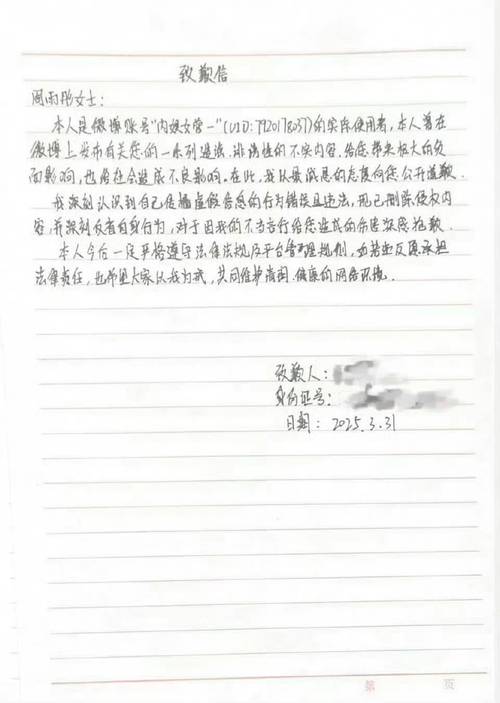 致歉信
周雨彤女士：
本人是微博账号"内娱女警一"(UID:7920178037)的实际使用者，本人曾在
微博上发布有关您的一系列造谣、诽谤性的不实内容，给您带来极大的负
面影响，也给社会造成不良影响。在此，我以最诚恳的态度向您公开道歉。
我深刻认识到自己传播虚假信息的行为错误且违法，现已删除侵权内
容，并深刻反省自身行为，对于因我的不当言行给您造成的伤害深感抱歉。
本人今后一定严格遵守法律法规及平台管理规则，如若再犯愿承担
法律责任，也希望大家以我为戒，共同维护清朗、健康的网络环境。
致歉人：
身份证号：
日期：2025.3.31
第 页